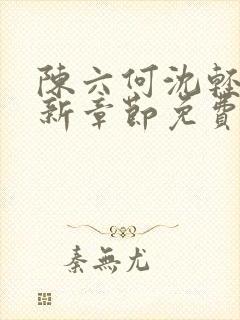 陳六何沈輕
新章節免費
秦無尤